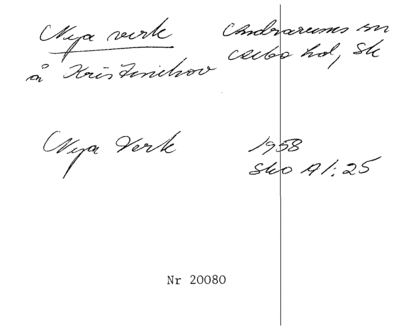 Nya verk
å Kristinehov
Andrarums sn
Albo hd, Sk
Nya Verk
1958
Sko A1:25
Nr 20080